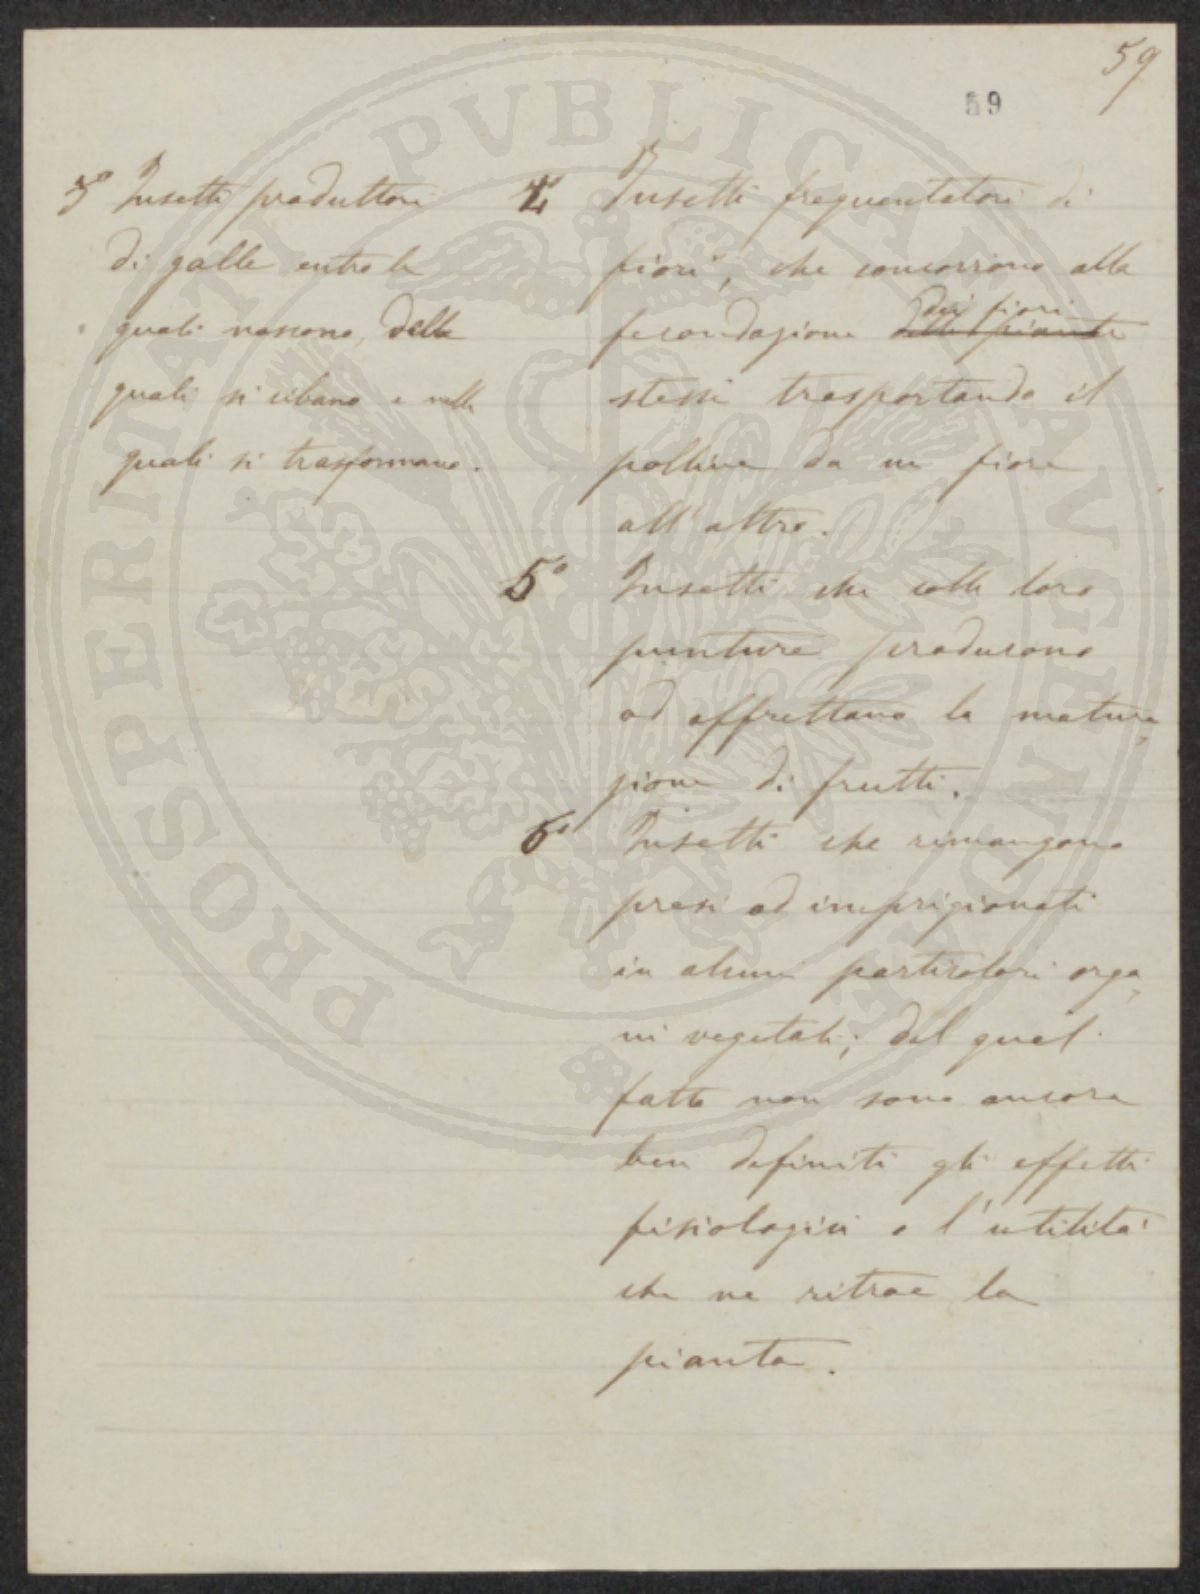 59
59
3° Insetti produttori
di galle entro le
quali nascono, delle
quali si cibano e nelle
quali si trasformano.
4° Insetti frequentatori di
fiori, che concorrono alla
fecondazione delle piante dei fiori
stessi trasportando il
polline da un fiore
all'altro.
5° Insetti che colle loro
punture producono
od affrettano la matura
zione di frutti.
6° Insetti che rimangono
presi od imprigionati
in alcuni particolari orga
ni vegetali; del qual
fatto non sono ancora
ben definiti gli effetti
fisiologici o l'utilità
che ne ritrae la
pianta.
PROSPERITATI PVBLICAE AVGENDAE